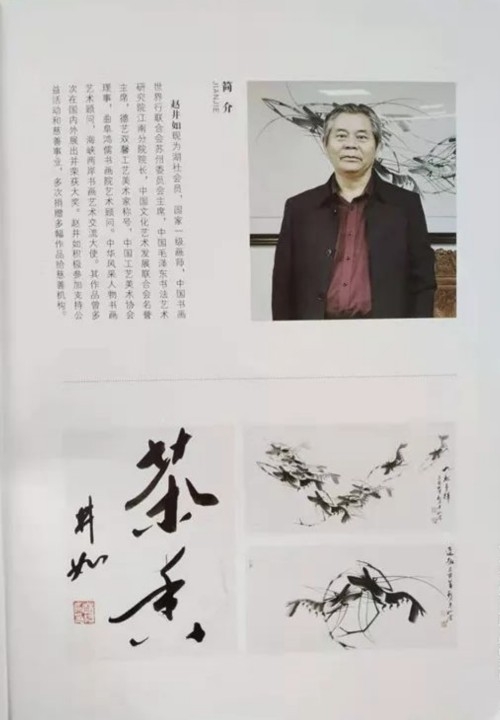 简介
JIANJIE
赵井如现为湖社会员，国家一级画师，中国书画
世界行联合会苏州委员会主席，中国毛泽东书法艺术
研究院江南分院院长，中国文化艺术发展联合会名誉
主席，德艺双馨工艺美术家称号，中国工艺美术协会
理事，曲阜鸿儒书画院艺术顾问。中华风采人物书画
艺术顾问，海峡两岸书画艺术交流大使。其作品曾多
次在国内外展出并荣获大奖。赵井如积极参加支持公
益活动和慈善事业，多次捐赠多幅作品给慈善机构。
茶香
井如